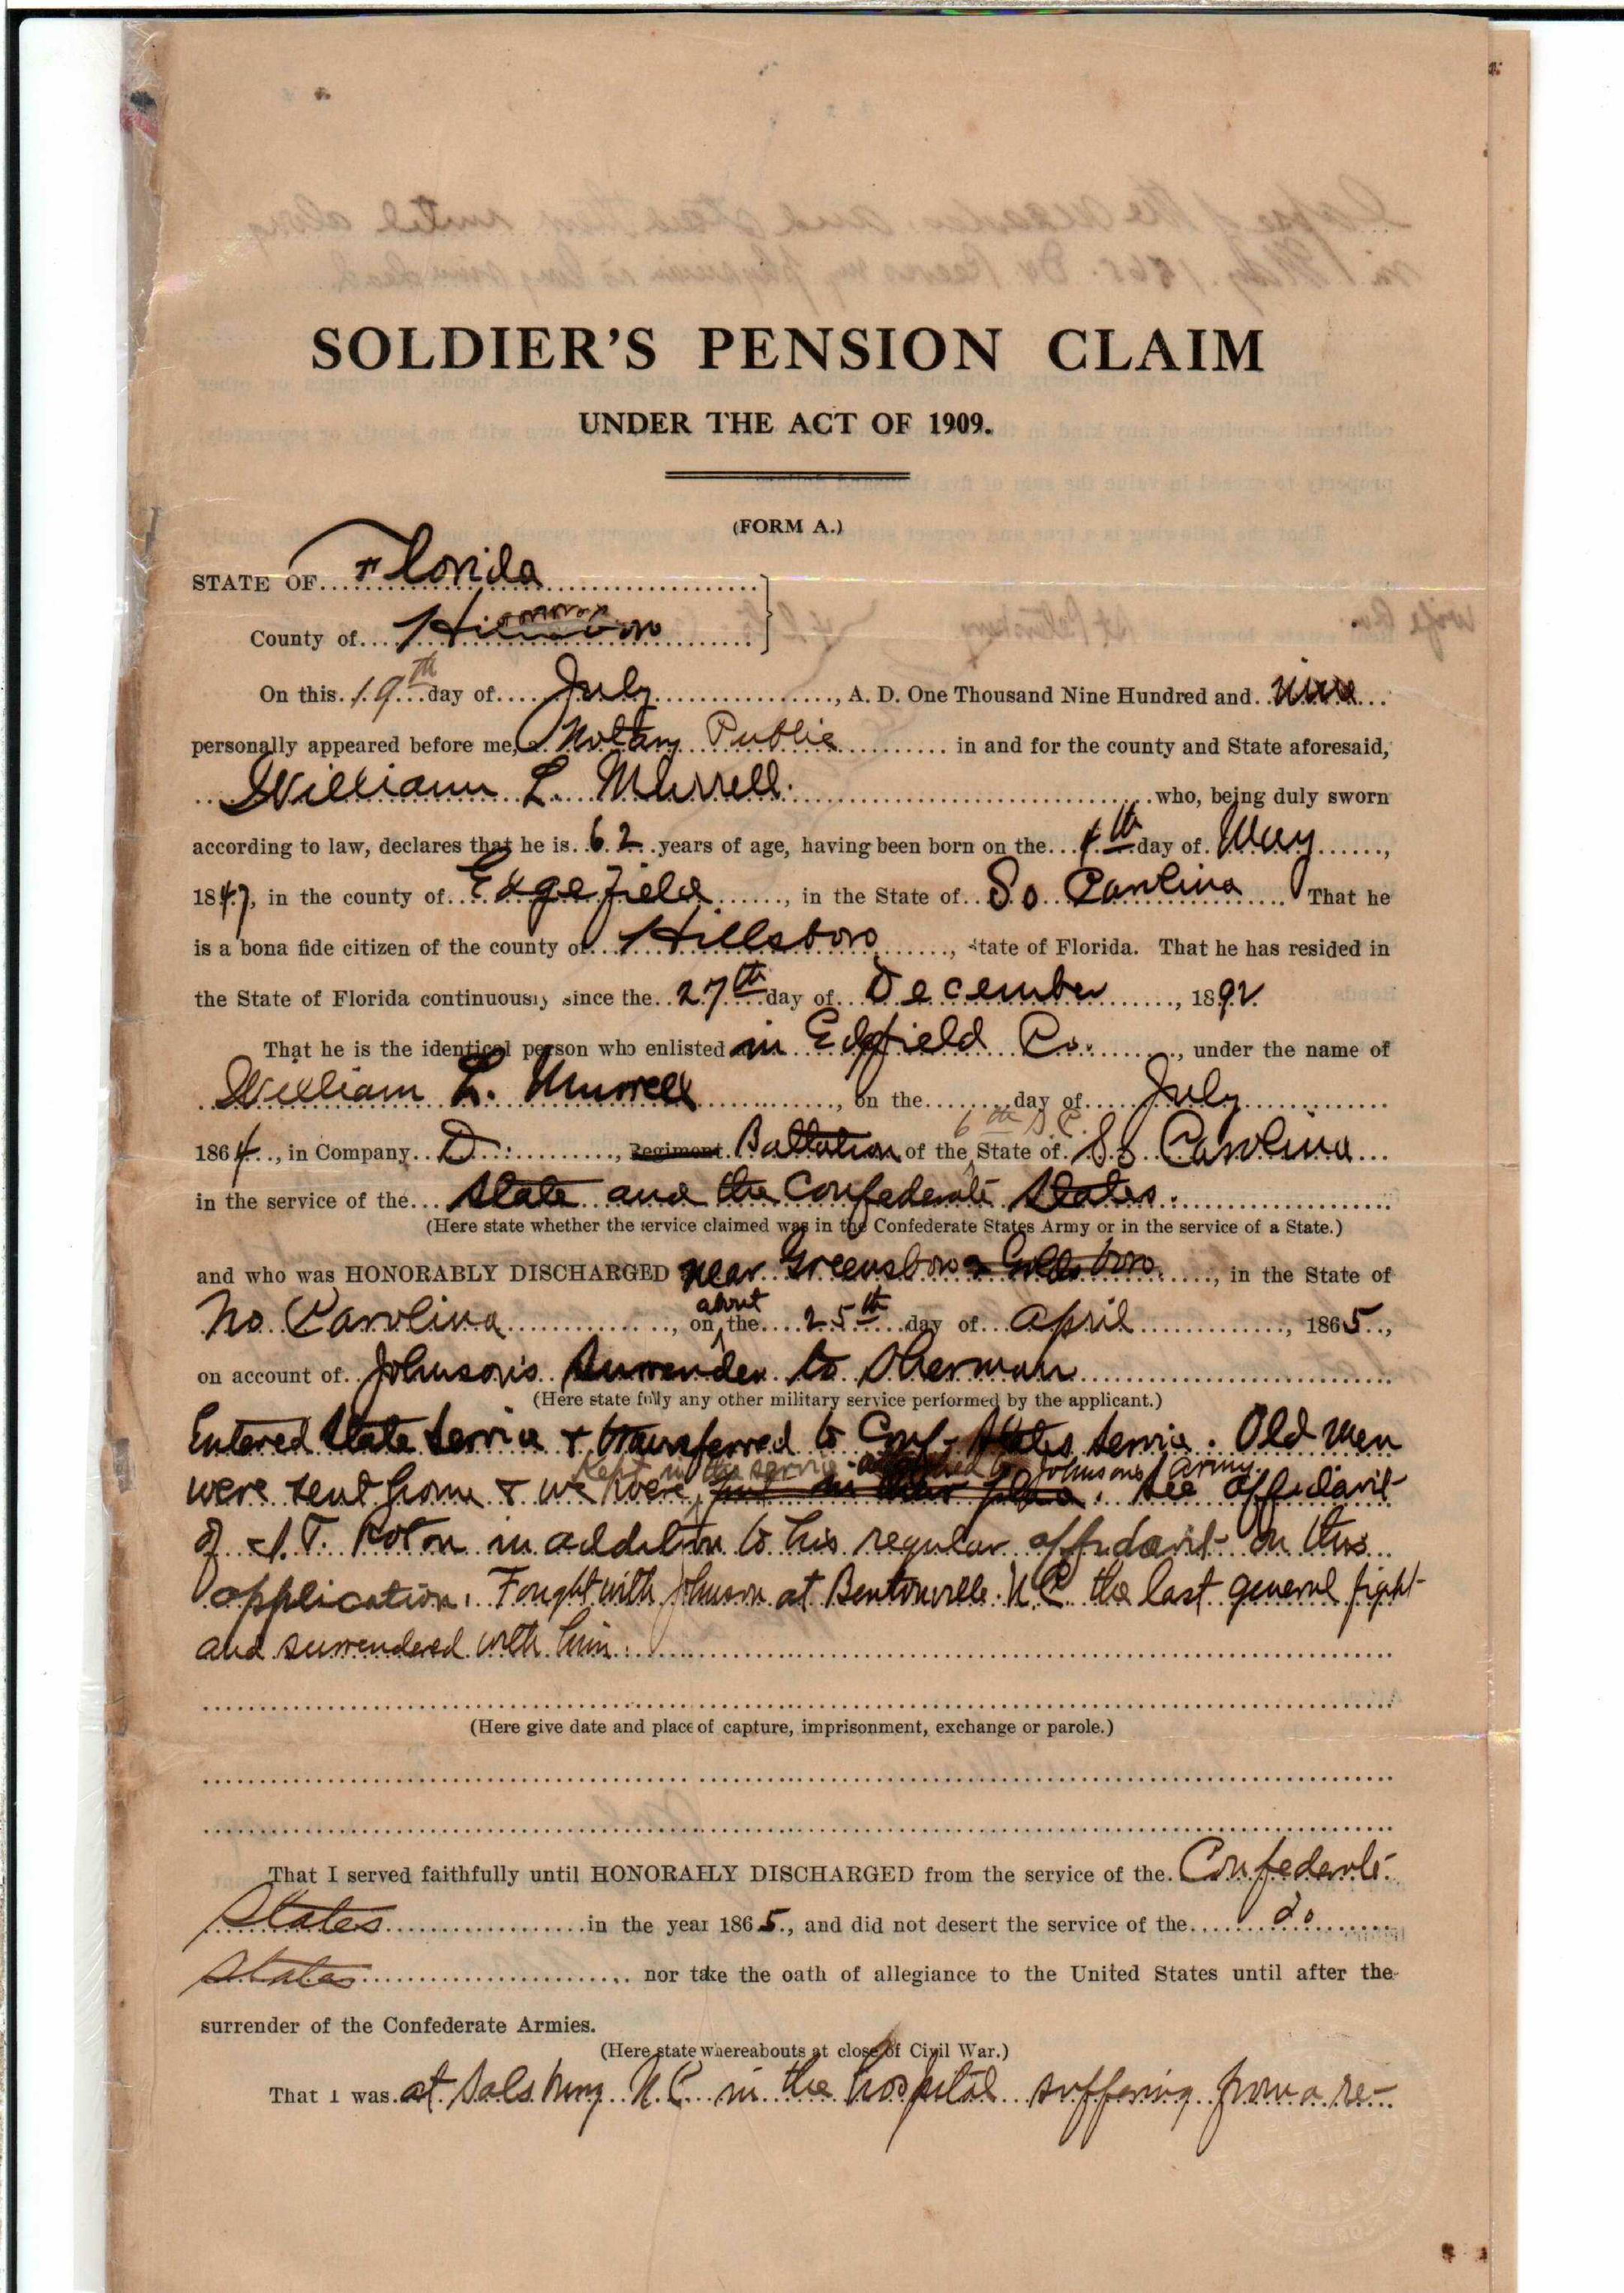 SOLDIER'S PENSION CLAIM
UNDER THE ACT OF 1909.
(FORM A.)
STATE OF Florida
County of
On this 19th day of July, A. D. One Thousand Nine Hundred and nine
personally appeared before me, a Notary Public in and for the county and State aforesaid,
William L. Murrell who, being duly sworn
according to law, declares that he is 62 years of age, having been born on the 4th day of May,
1847, in the county of Edgefield, in the State of So Carolina That he
is a bona fide citizen of the county of Hillsboro, State of Florida. That he has resided in
the State of Florida continuously since the 27th day of December, 1892
That he is the identical person who enlisted in Edgfield Co., under the name of
William L. Murrell, on the day of July
1864, in Company D, Regiment Battalion of the 6th S.C. State of So Carolina
in the service of the State and the Confederate States.
(Here state whether the service claimed was in the Confederate States Army or in the service of a State.)
and who was HONORABLY DISCHARGED near Greensboro, in the State of
No Carolina, on about the 25th day of April, 1865,
on account of Johnson's Surrender to Sherman
(Here state fully any other military service performed by the applicant.)
Entered State Service & transferred to Conf- States Servic. Old men
were sent home & we were kept in the servic attached to Johnsons Army. See affidavit
of J.T. in addition to his regular affidavit on this
application. Fought with Johnson at Bentonville N.C. the last general fight
and surrendered with him.
(Here give date and place of capture, imprisonment, exchange or parole.)
That I served faithfully until HONORABLY DISCHARGED from the service of the Confederate
States in the year 1865, and did not desert the service of the do
States nor take the oath of allegiance to the United States until after the
surrender of the Confederate Armies.
(Here state whereabouts at close of Civil War.)
That I was at Salsbury N.C. in the hospital suffering from a re-